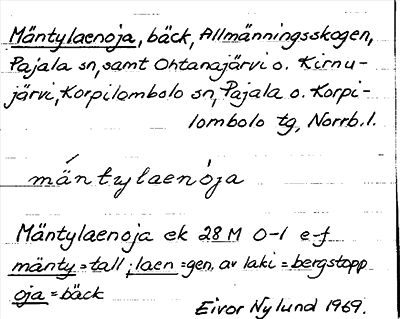 Mäntylaenoja, bäck, Allmänningsskogen,
Pajala sn, samt Ohtanajärvi o. Kirnu-
järvi, Korpilombolo sn, Pajala o. Korpi-
lombolo tg, Norrb. l.
mäntylaenoja
Mäntylaenoja ek 28 M 0-1 e-f
mänty = tall; laen = gen. av laki = bergstopp
oja = bäck
Eivor Nylund 1969.